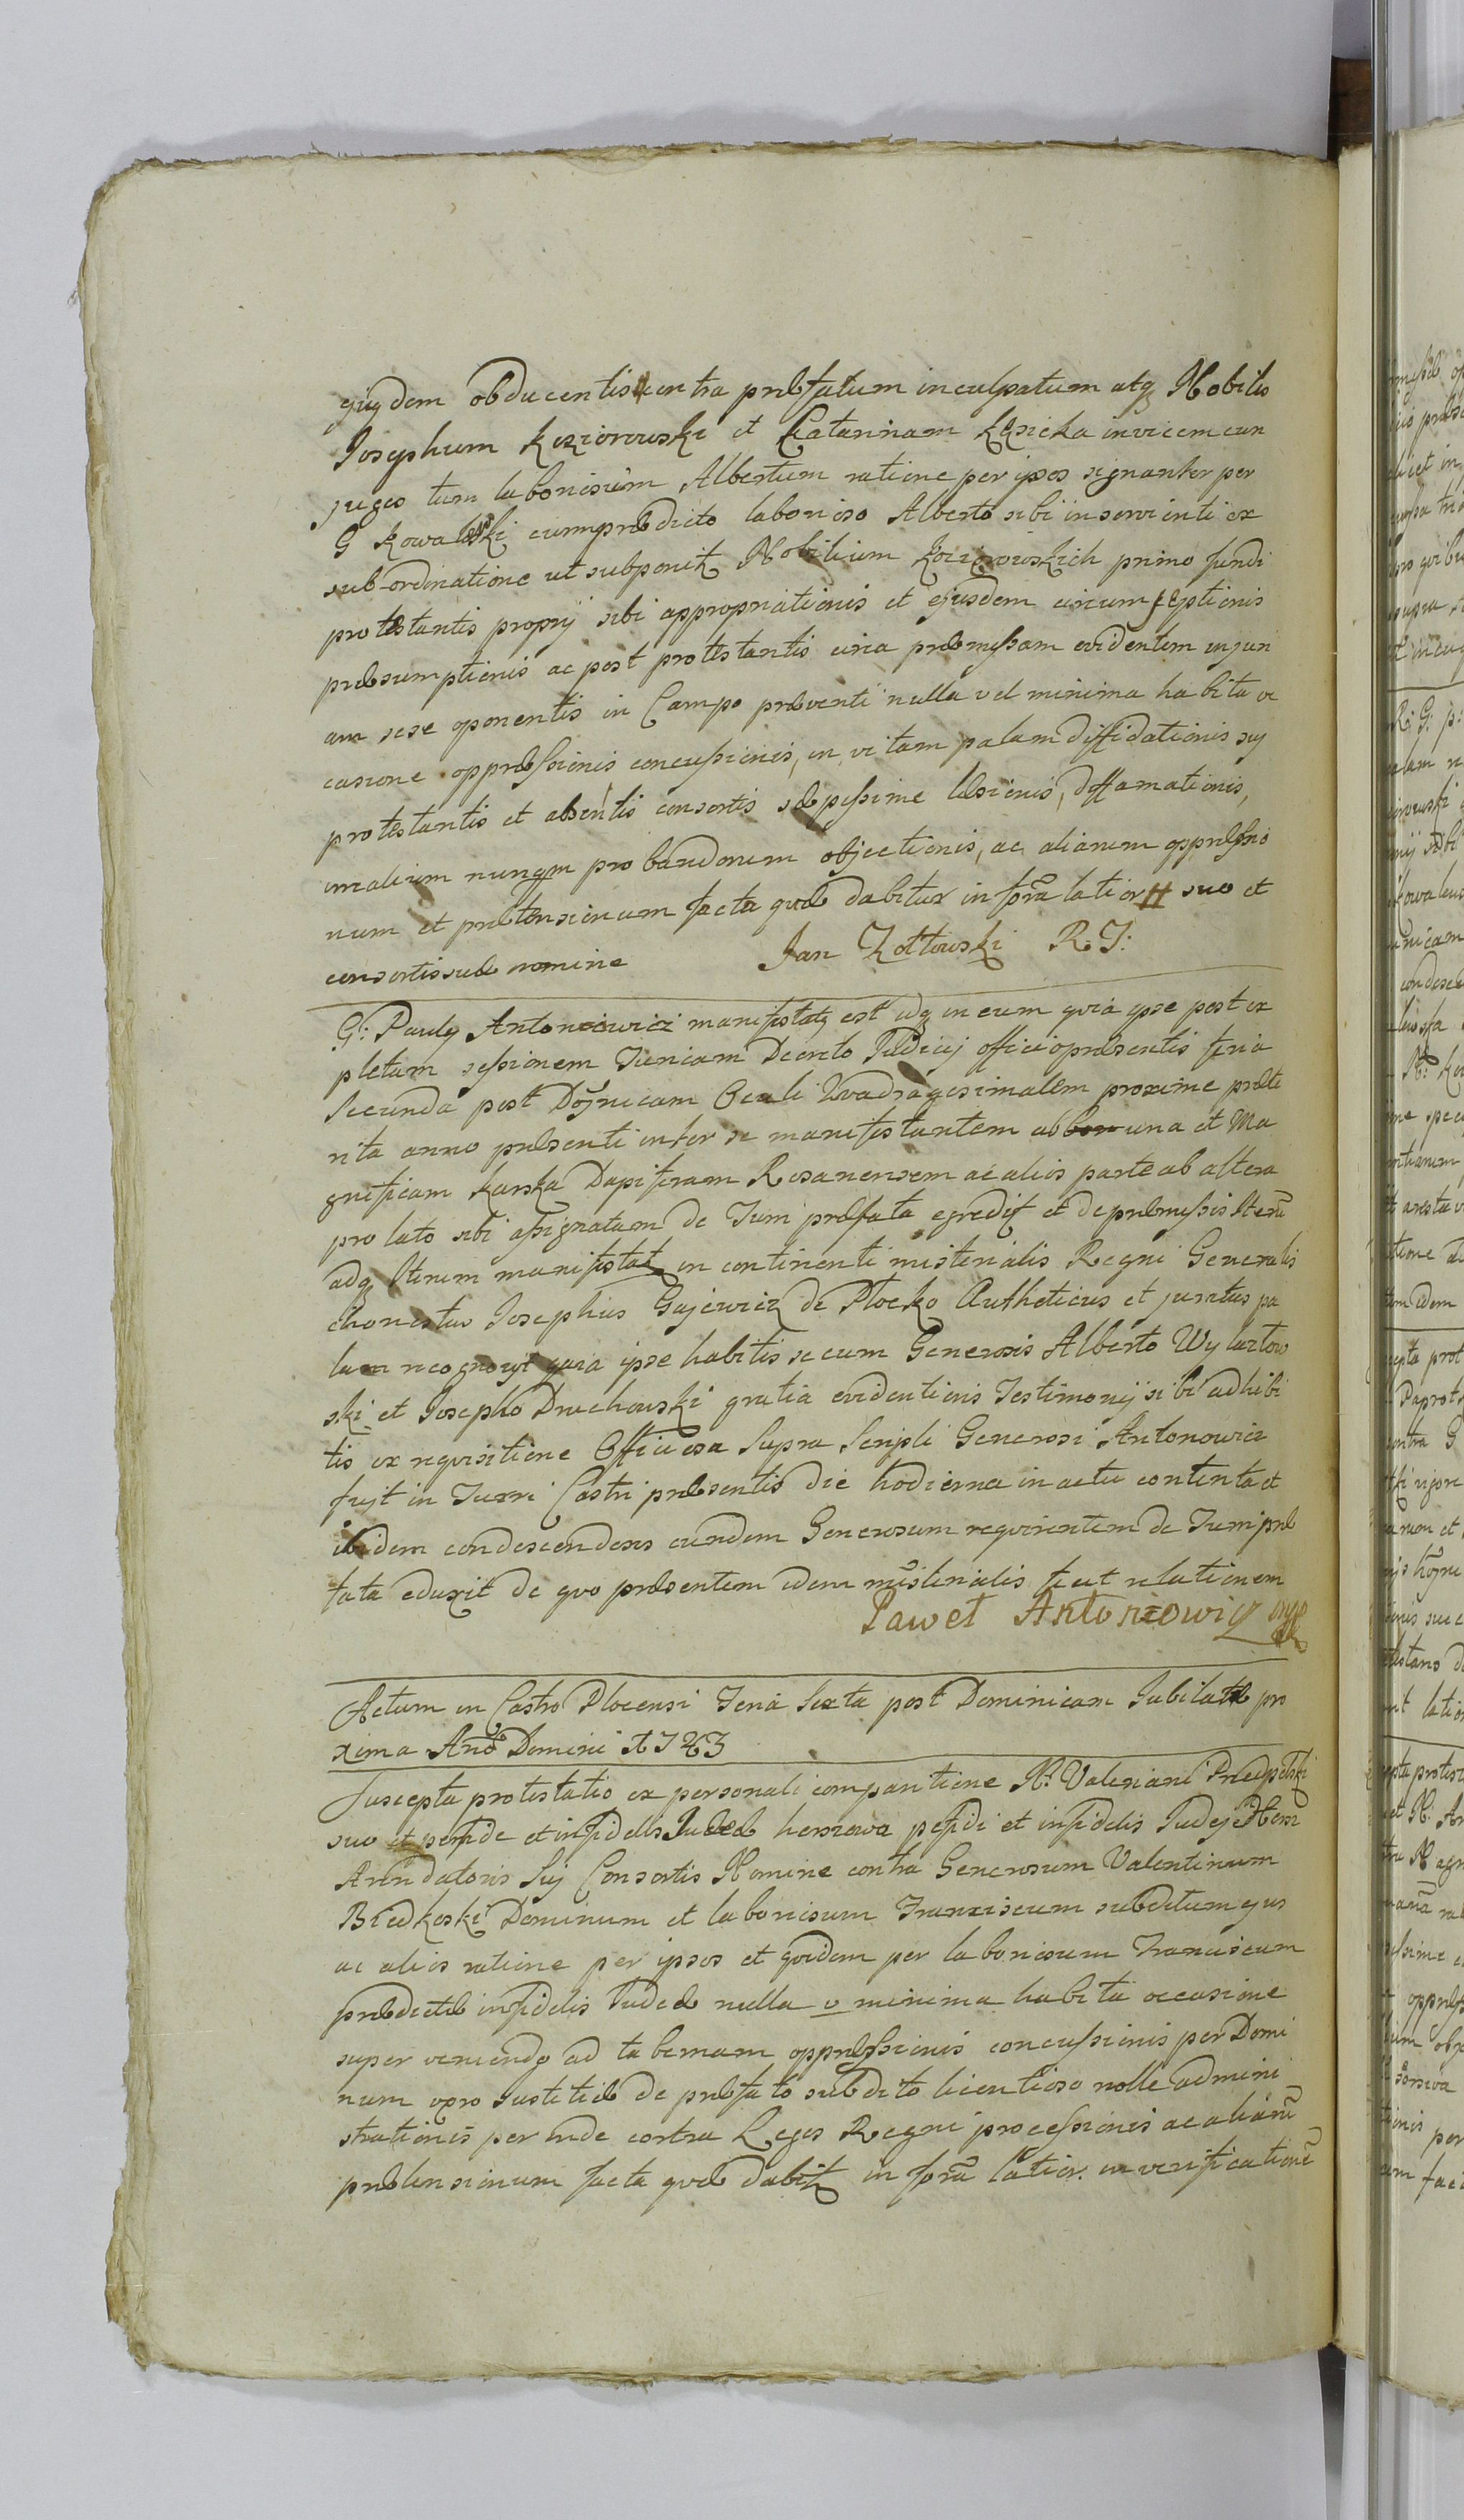 ejusdem obducentis contra præfatum inculpatum atq Nobiles
Josephum Koziorowski et Catarinam Kęsicka invicem con
juges tum laboriosum Albertum ratione per ipsos signanter per
G Kowalski cum prædicto laborioso Alberto sibi inservienti ex
sub-ordinatione ut subponit Nobilium Koziorowskich primo fundi
protestantis proprij sibi appropriationis et ejusdem circumseptionis
præsumptionis ac post protestantis circa præmissam evidentem injuri
am sese oponentis in Campo præventi nulla vel minima habita oc
casione oppressionis concussionis, in vitam palam diffidationis sui
protestantis et absentis consortis sæpissime læsionis, diffamationis,
malium nunqm probandorum objectionis, ac aliarum oppressio
num et prætensionum facta quæ dabitur in forā latiori suo et
consortis suæ nomine Jan Zółtowski R. T:
G: Paulus Antonowicz manifestatq est idq in eum quia ipse post ex
pletam sessionem Turriam Decreto Judicij officij præsentis feria
Secunda post Dom̃nicam Oculi Quadragesimalem proxime præte
rita anno præsenti inter se manifestantem ab una et Ma
gnificam Karska Dapiferam Rosanensem ac alios parte ab altera
prolato sibi assignatam de Turri præfata egredit et de præmissis Iterū
adq Iterum manifestat in continenti misterialis Regni Generalis
honestus Josephus Gajewicz de Płocko Autheticus et juratus pa
lam recognovit quia ipse habitis secum Generosis Alberto Wylazłow
ski et Josepho Druchowski gratia evidentioris Testimonij sibi adhibi
tis ex requisitione Officiosa Supra Scripti Generosi Antonowicz
fuit in Turri Castri præsentis die hodierna in actu contenta et
ibidem condescendens eundem Generosum requirentem de Turri præ
fata eduxit de quo præsentem idem misterialis fecit relationem
Paweł Antonowicz mp
Actum in Castro Plocensi Feria Sexta post Dominicam Jubilate pro
xima Anō Domini 1763
Suscepta protestatio ex personali comparitione N:
suo et perfidæ et infidelis Judeæ perfidi et infidelis Judej
Arendatoris Sui Consortis Nomine contra Generosum Valentinum
Dominum et laboriosum Franciscum subditum ejus
ac alios ratione per ipsos et quidem per laboriosum Franciscum
prædictæ infidelis Judeæ nulla v minima habita occasione
super veniendo ad tabernam oppressionis concussionis per Domi
num vero justitiæ de præfato subdito licentioso nolle admini
strationis perinde contra Leges Regni processionis ac aliarū
prætensionum facta quæ dabit in forā latior. in verificationē